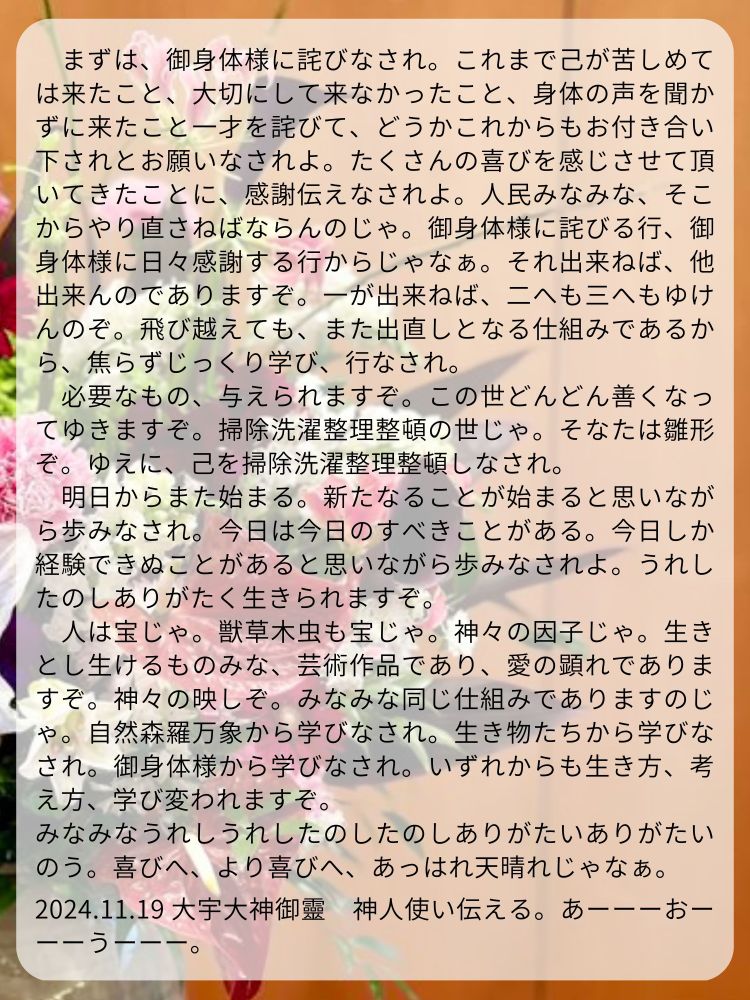 まずは、御身体様に詫びなされ。これまで己が苦しめて
は来たこと、大切にして来なかったこと、身体の声を聞か
ずに来たこと一才を詫びて、どうかこれからもお付き合い
下されとお願いなされよ。たくさんの喜びを感じさせて頂
いてきたことに、感謝伝えなされよ。人民みなみな、そこ
からやり直さねばならんのじゃ。御身体様に詫びる行、御
身体様に日々感謝する行からじゃなぁ。それ出来ねば、他
出来んのでありますぞ。一が出来ねば、二へも三へもゆけ
んのぞ。飛び越えても、また出直しとなる仕組みであるか
ら、焦らずじっくり学び、行なされ。
　必要なもの、与えられますぞ。この世どんどん善くなっ
てゆきますぞ。掃除洗濯整理整頓の世じゃ。そなたは雛形
ぞ。ゆえに、己を掃除洗濯整理整頓しなされ。
　明日からまた始まる。新たなることが始まると思いなが
ら歩みなされ。今日は今日のすべきことがある。今日しか
経験できぬことがあると思いながら歩みなされよ。うれし
たのしありがたく生きられますぞ。
　人は宝じゃ。獣草木虫も宝じゃ。神々の因子じゃ。生き
とし生けるものみな、芸術作品であり、愛の顕れでありま
すぞ。神々の映しぞ。みなみな同じ仕組みでありますのじ
ゃ。自然森羅万象から学びなされ。生き物たちから学びな
され。御身体様から学びなされ。いずれからも生き方、考
え方、学び変われますぞ。
みなみなうれしうれしたのしたのしありがたいありがたい
のう。喜びへ、より喜びへ、あっはれ天晴れじゃなぁ。
2024.11.19 大宇大神御靈　神人使い伝える。あーーーおー
ーーうーーー。